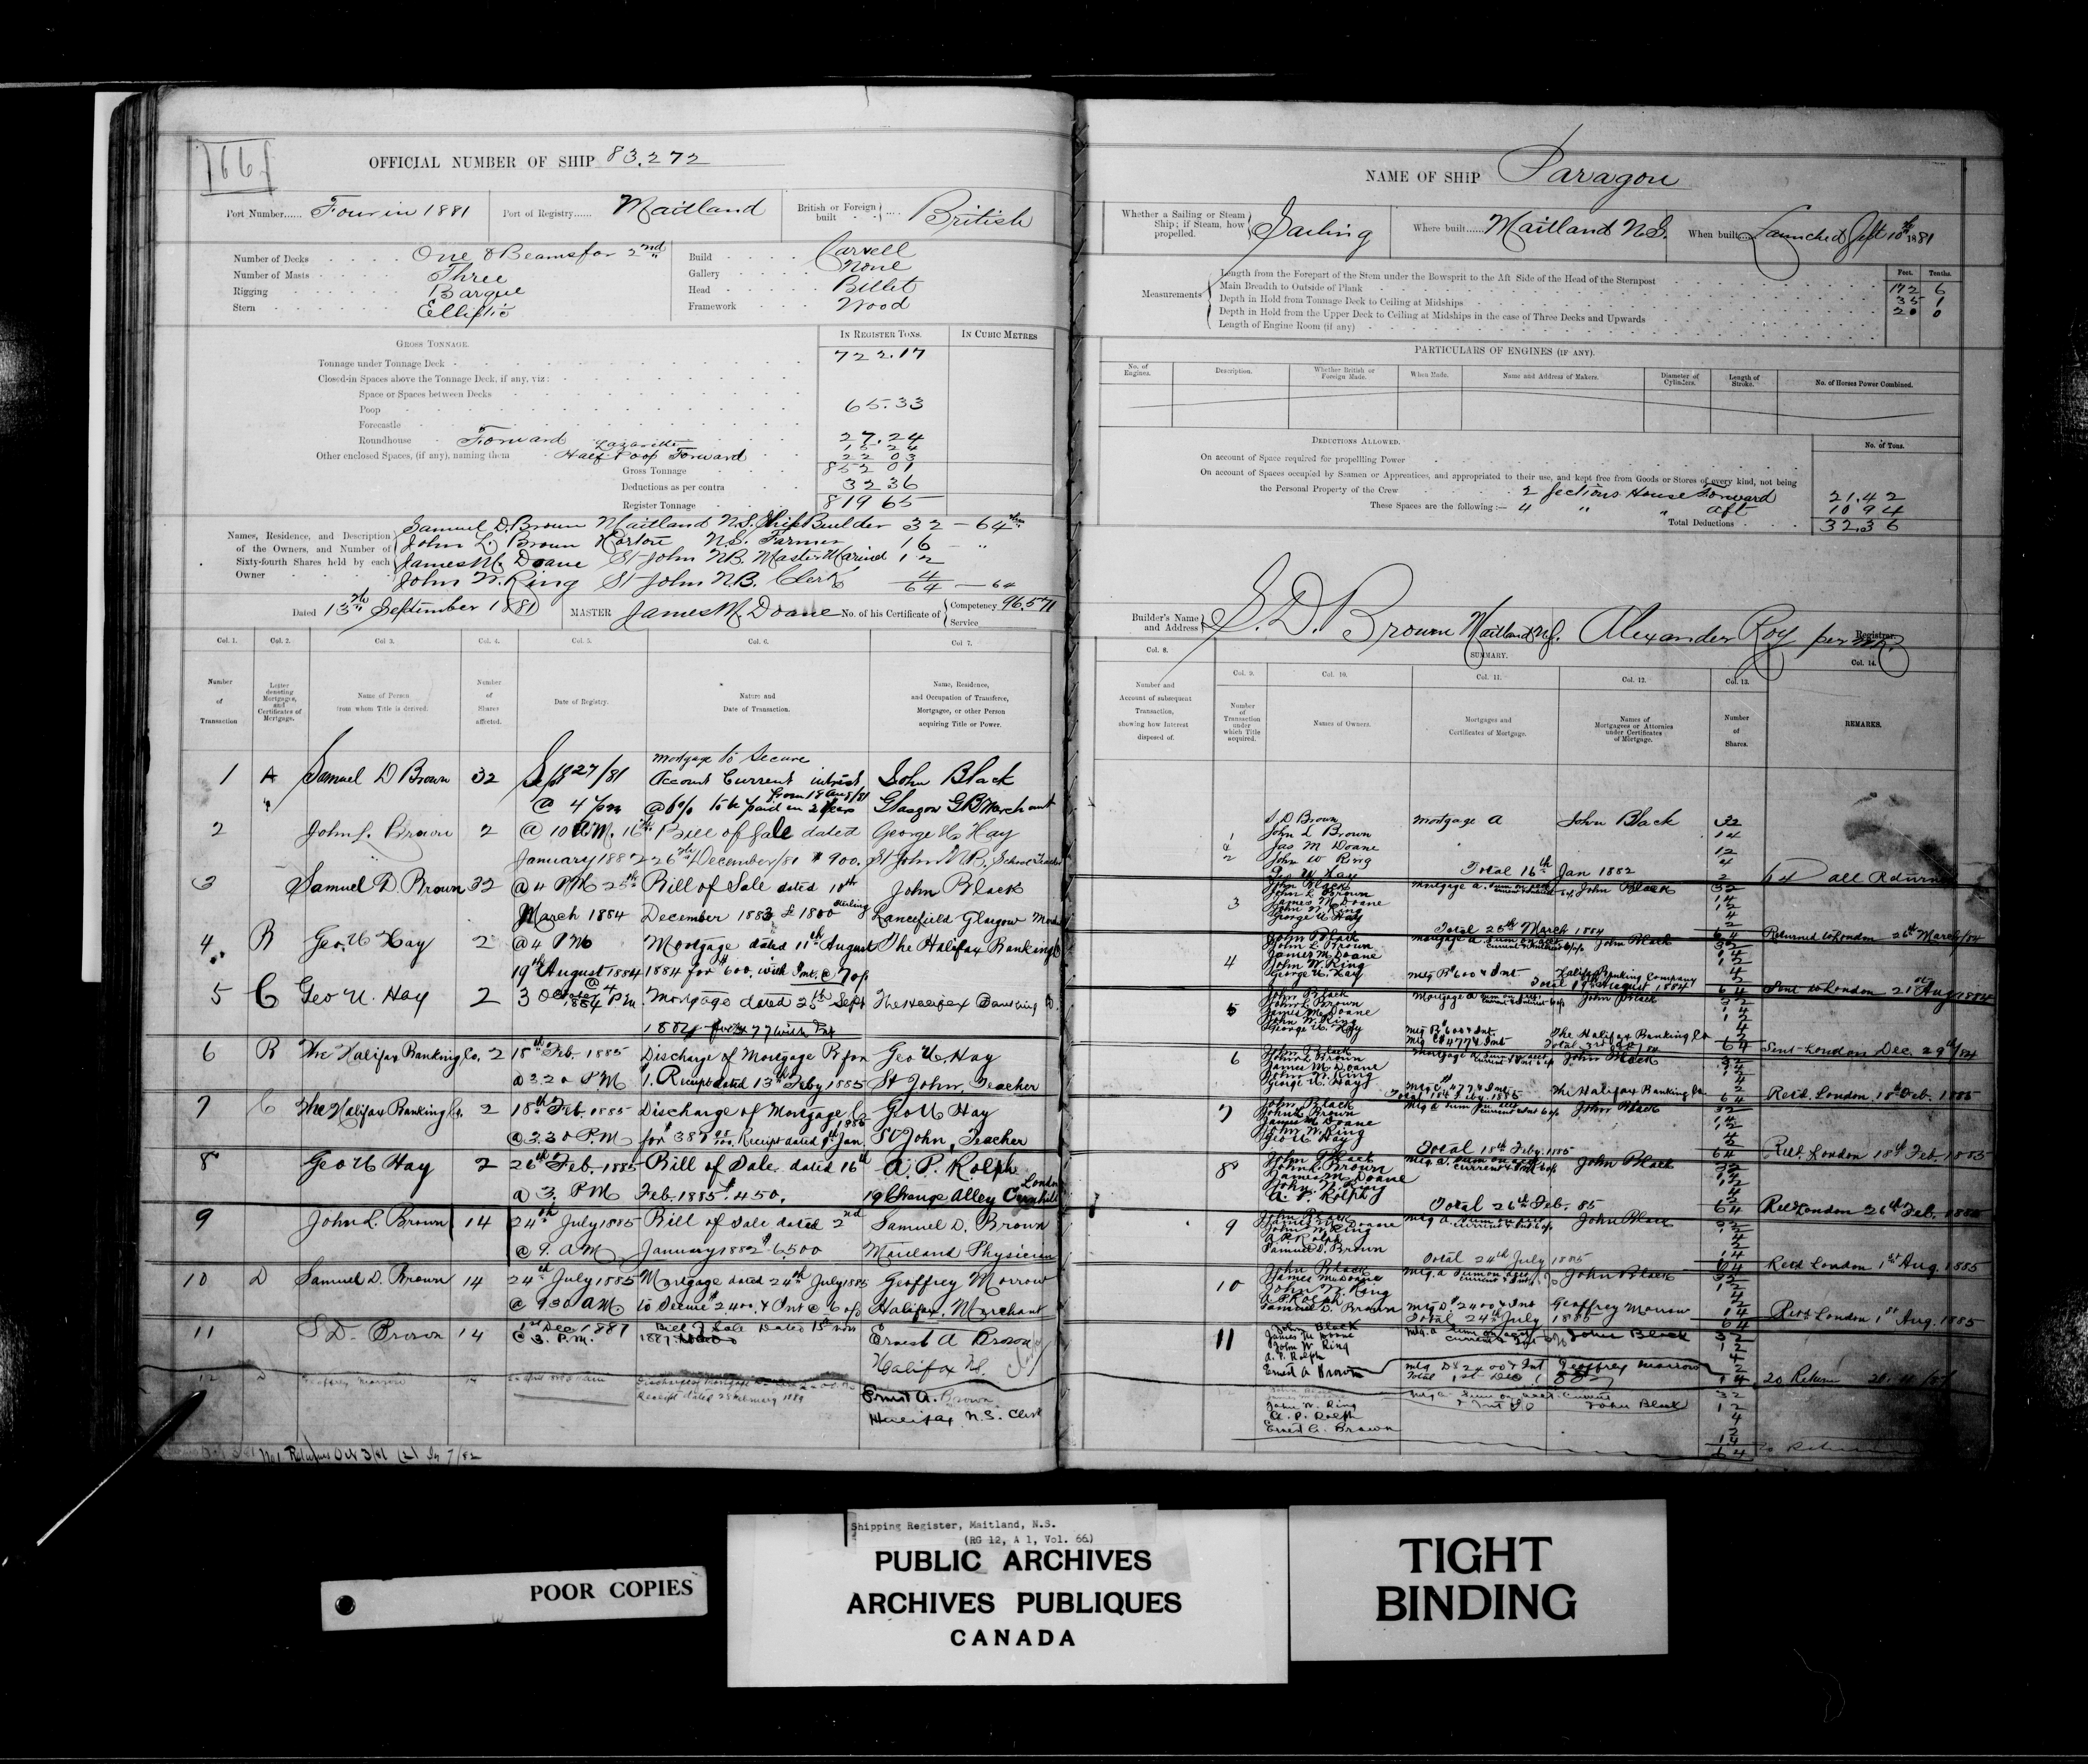 166
OFFICIAL NUMBER OF SHIP 83.272
Port Number...... Four in 1881 Port of Registry...... Maitland British or Foreign built British
Number of Decks One & Beams for 2nd Build Carvell
Number of Masts Three Gallery None
Rigging Barque Head Billet
Stern Elliptic Framework Wood
GROSS TONNAGE. IN REGISTER TONS. IN CUBIC METRES
Tonnage under Tonnage Deck 722.17
Closed-in Spaces above the Tonnage Deck, if any, viz:
Space or Spaces between Decks
Poop 65.33
Forecastle
Roundhouse Forward 27.24
Lazarette 15 24
Other enclosed Spaces, (if any), naming them Half Poop Forward 22 03
Gross Tonnage 852 01
Deductions as per contra 32 36
Register Tonnage 819 65
Names, Residence, and Description of the Owners, and Number of Sixty-fourth Shares held by each Owner
Samuel D. Brown Maitland N.S. Ship Builder 32 - 64ths
John L. Brown Horton N.S. Farmer 16 - "
James M. Doane St John NB. Master Marined 12
John W. Ring St John N.B. Clerk 4
64 - 64
Dated 13th September 1881 MASTER James M. Doane No. of his Certificate of Competency 96.571
Service
Col. 1. Col. 2. Col 3. Col. 4. Col. 5. Col. 6. Col 7.
Number of Transaction
Letter denoting Mortgages, and Certificates of Mortgage.
Name of Person from whom Title is derived.
Number of Shares affected.
Date of Registry.
Nature and Date of Transaction.
Name, Residence, and Occupation of Transferee, Mortgagee, or other Person acquiring Title or Power.
1 A Samuel D Brown 32 Sept 27/81 Mortgage to Secure Account Current interest John Black
" @ 4 pm from 18 Aug/81 @ 6% to be paid in 2 years Glasgow GB Merchant
2 John L. Brown 2 @ 10 AM. 16th Bill of Sale dated George U. Hay
January 1882 26th December/81 $900. St John N.B. School Teacher
3 Samuel D. Brown 32 @ 4 PM 25th Bill of Sale dated 10th John Black
March 1884 December 1883 £1800 sterling Lancefield Glasgow
4. B Geo. U Hay 2 @ 4 PM Mortgage dated 11th August The Halifax Banking Co
19th August 1884 1884 for $600, with Int. @ 7 o/o
5 C Geo U. Hay 2 3 October 1884 @ 4 P.M. Mortgage dated 25th Sept The Halifax Banking Co.
1884 for $477 with Int
6 B The Halifax Banking Co. 2 18th Feb. 1885 Discharge of Mortgage B for Geo U. Hay
@ 3.20 P.M $1. Receipt dated 13th Feby 1885 St John, Teacher
7 C The Halifax Banking Co. 2 18th Feb. 1885 Discharge of Mortgage C Geo U Hay
@ 3.30 P.M. for $387 Receipt dated 9th Jan. 1885 St John, Teacher
8 Geo U Hay 2 26th Feb. 1885 Bill of Sale dated 16th A. P. Rolph
@ 3. PM Feb. 1885 $450. 19 Change Alley Cornhill London
9 John L. Brown 14 24th July 1885 Bill of Sale dated 2nd Samuel D. Brown
@ 9. AM January 1882 $6500 Maitland Physician
10 D Samuel D. Brown 14 24th July 1885 Mortgage dated 24th July 1885 Geoffrey Morrow
@ 9 30 AM to Secure $2,400. & Int @ 6 o/o Halifax. Merchant
11 S D. Brown 14 1st Dec 1887 Bill of Sale Dated 15th Nov Ernest A Brown
@ 3. P.M. 1887. Halifax NS.
12 D Geoffrey Morrow 14 Discharge of Mortgage Ernest A. Brown
Receipt dated 28 February 1889 Halifax, N.S. Clerk
No 1 Returns Oct 3/81 (2) Jy 7/82
NAME OF SHIP Paragon
Whether a Sailing or Steam Ship; if Steam, how propelled. Sailing Where built...... Maitland N.S. When built.... Launched Sept 10th 1881
Feet. Tenths.
Measurements
Length from the Forepart of the Stem under the Bowsprit to the Aft Side of the Head of the Sternpost 172 6
Main Breadth to Outside of Plank 35 1
Depth in Hold from Tonnage Deck to Ceiling at Midships 20 0
Depth in Hold from the Upper Deck to Ceiling at Midships in the case of Three Decks and Upwards
Length of Engine Room (if any)
PARTICULARS OF ENGINES (IF ANY).
No. of Engines. Description. Whether British or Foreign Made. When Made. Name and Address of Makers. Diameter of Cylinders. Length of Stroke. No. of Horses Power Combined.
DEDUCTIONS ALLOWED. No. of Tons.
On account of Space required for propelling Power
On account of Spaces occupied by Seamen or Apprentices, and appropriated to their use, and kept free from Goods or Stores of every kind, not being
the Personal Property of the Crew 2 Sections House Forward 21.42
These Spaces are the following:— 4 " " aft 10 94
Total Deductions 32.36
Builder's Name and Address S. D. Brown Maitland N.S. Alexander Roy per Registrar.
Col. 8. SUMMARY. Col. 14.
Col. 9. Col. 10. Col. 11. Col. 12. Col. 13.
Number and Account of subsequent Transaction, showing how Interest disposed of.
Number of Transaction under which Title acquired.
Names of Owners.
Mortgages and Certificates of Mortgage.
Names of Mortgagees or Attornies under Certificates of Mortgage.
Number of Shares.
REMARKS.
S. D Brown Mortgage A John Black 32
1 John L Brown 14
Jas M Doane 12
2 John W Ring 4
Geo U Hay Total 16th Jan 1882 2
64 all Returned
John Black Mortgage a. John Black 32
John L Brown 14
3 James M Doane 12
John W Ring 4
George U Hay 2
Total 26th March 1884 64 Returned to London 26th March/84
John Black Mortgage a John Black 32
John L Brown 14
4 James M Doane 12
John W Ring 4
George U. Hay Mtg B $600 & Int Halifax Banking Company 2
Total 19th August 1884 64 Sent to London 21st Aug 1884
John Black Mortgage a John Black 32
5 John L Brown 14
James M Doane 12
John W. Ring 4
George U. Hay Mtg B $600 & Int The Halifax Banking Co 2
Mtg C $477 & Int 64 Sent London Dec. 29th/84
6 John Black Mortgage a John Black 32
John L Brown 14
James M Doane 12
John W. Ring 4
George U. Hay Mtg C $477 & Int The Halifax Banking Co 2
Total 18th Feby. 1885 64 Retd. London 18th Feb. 1885
7 John Black Mtg a Sum on acct current John Black 32
John L Brown 14
James M Doane 12
John W. Ring 4
Geo U Hay 2
Total 18th Feby. 1885 64 Retd. London 18th Feb. 1885
8 John Black Mtg a. Sum on acct current John Black 32
John L. Brown 14
James M Doane 12
John W. Ring 4
A. P. Rolph 2
Total 26th Feb. 85 64 Retd London 26th Feb. 1885
9 John Black Mtg a. John Black 32
James M Doane 12
John W Ring 4
A P. Rolph 2
Samuel D. Brown 14
Total 24th July 1885 64 Retd London 1st Aug. 1885
10 John Black Mtg. a Sum on acct John Black 32
James M Doane 12
John W. King 4
A P Rolph 2
Samuel D. Brown Mtg D $2400 & Int Geoffrey Morrow 14
Total 24th July 1885 64 Retd London 1st Aug. 1885
11 John Black Mtg. a John Black 32
James M Doane 12
John W Ring 4
A. P. Rolph 2
Ernest A Brown Mtg D $2400 & Int Geoffrey Morrow 14
Total 1st Dec 1887 20 Return
12 Mtg a. Sum on acct. Current 32
James M Doane & Int John Black 12
John W. Ring 4
A. P. Rolph 2
Ernest A. Brown 14
64 Return
POOR COPIES
Shipping Register, Maitland, N.S.
(RG 12, A 1, Vol. 66)
PUBLIC ARCHIVES
ARCHIVES PUBLIQUES
CANADA
TIGHT
BINDING